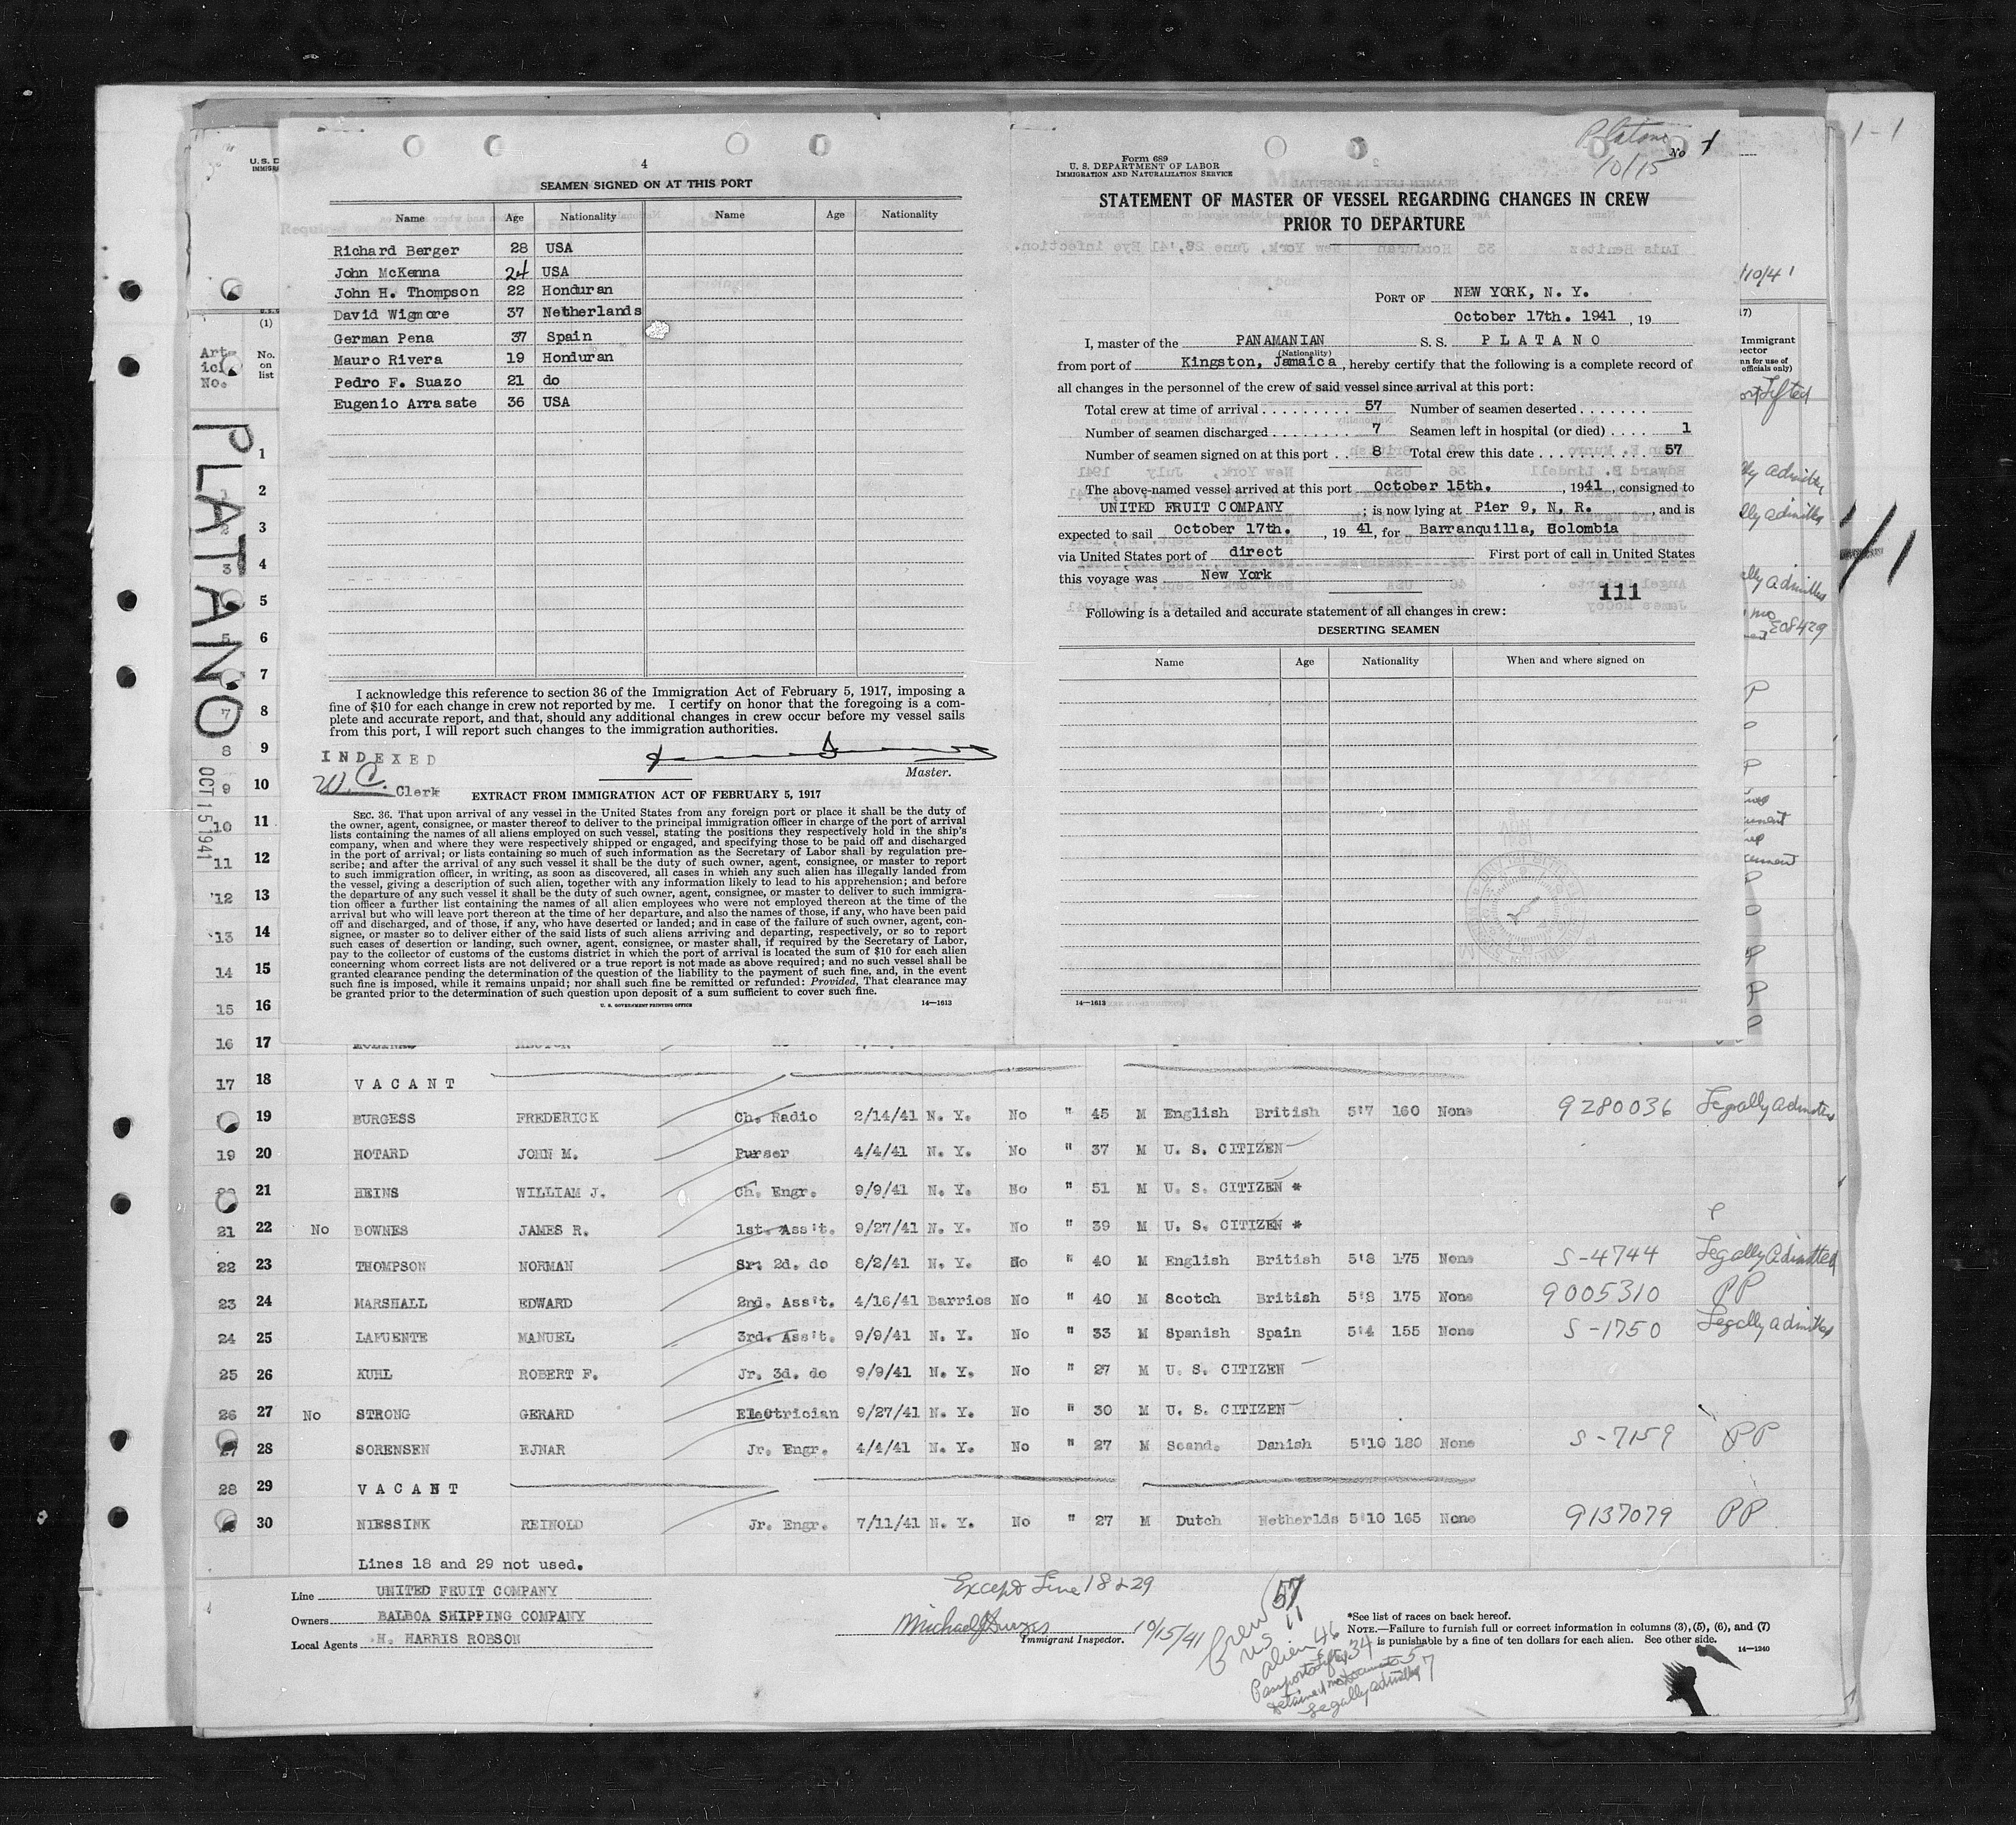 4
SEAMEN SIGNED ON AT THIS PORT
Name Age Nationality Name Age Nationality
Richard Berger 28 USA
John McKenna 24 USA
John H. Thompson 22 Honduran
David Wigmore 37 Netherlands
German Pena 37 Spain
Mauro Rivera 19 Honduran
Pedro F. Suazo 21 do
Eugenio Arrasate 36 USA
I acknowledge this reference to section 36 of the Immigration Act of February 5, 1917, imposing a
fine of $10 for each change in crew not reported by me. I certify on honor that the foregoing is a com-
plete and accurate report, and that, should any additional changes in crew occur before my vessel sails
from this port, I will report such changes to the immigration authorities.
INDEXED
W.C. Clerk
Master.
EXTRACT FROM IMMIGRATION ACT OF FEBRUARY 5, 1917
SEC. 36. That upon arrival of any vessel in the United States from any foreign port or place it shall be the duty of
the owner, agent, consignee, or master thereof to deliver to the principal immigration officer in charge of the port of arrival
lists containing the names of all aliens employed on such vessel, stating the positions they respectively hold in the ship's
company, when and where they were respectively shipped or engaged, and specifying those to be paid off and discharged
in the port of arrival; or lists containing so much of such information as the Secretary of Labor shall by regulation pre-
scribe; and after the arrival of any such vessel it shall be the duty of such owner, agent, consignee, or master to report
to such immigration officer, in writing, as soon as discovered, all cases in which any such alien has illegally landed from
the vessel, giving a description of such alien, together with any information likely to lead to his apprehension; and before
the departure of any such vessel it shall be the duty of such owner, agent, consignee, or master to deliver to such immigra-
tion officer a further list containing the names of all alien employees who were not employed thereon at the time of the
arrival but who will leave port thereon at the time of her departure, and also the names of those, if any, who have been paid
off and discharged, and of those, if any, who have deserted or landed; and in case of the failure of such owner, agent, con-
signee, or master so to deliver either of the said lists of such aliens arriving and departing, respectively, or so to report
such cases of desertion or landing, such owner, agent, consignee, or master shall, if required by the Secretary of Labor,
pay to the collector of customs of the customs district in which the port of arrival is located the sum of $10 for each alien
concerning whom correct lists are not delivered or a true report is not made as above required; and no such vessel shall be
granted clearance pending the determination of the question of the liability to the payment of such fine, and, in the event
such fine is imposed, while it remains unpaid; nor shall such fine be remitted or refunded: Provided, That clearance may
be granted prior to the determination of such question upon deposit of a sum sufficient to cover such fine.
U. S. GOVERNMENT PRINTING OFFICE 14—1613
Platano
10/15
No 1
Form 689
U. S. DEPARTMENT OF LABOR
IMMIGRATION AND NATURALIZATION SERVICE
STATEMENT OF MASTER OF VESSEL REGARDING CHANGES IN CREW
PRIOR TO DEPARTURE
PORT OF NEW YORK, N. Y.
October 17th. 1941, 19
I, master of the PANAMANIAN S. S. PLATANO
(Nationality)
from port of Kingston, Jamaica, hereby certify that the following is a complete record of
all changes in the personnel of the crew of said vessel since arrival at this port:
Total crew at time of arrival 57 Number of seamen deserted
Number of seamen discharged 7 Seamen left in hospital (or died) 1
Number of seamen signed on at this port 8 Total crew this date 57
The above-named vessel arrived at this port October 15th., 1941, consigned to
UNITED FRUIT COMPANY; is now lying at Pier 9, N, R., and is
expected to sail October 17th., 19 41, for Barranquilla, Colombia
via United States port of direct First port of call in United States
this voyage was New York
111
Following is a detailed and accurate statement of all changes in crew:
DESERTING SEAMEN
Name Age Nationality When and where signed on
14—1613
PLATANO
OCT 15 1941
1-1
41
(1)
No. on list
16 17
17 18 VACANT
19 BURGESS FREDERICK Ch. Radio 2/14/41 N. Y. No " 45 M English British 5'7 160 None 9280036 Legally admitted
19 20 HOTARD JOHN M. Purser 4/4/41 N. Y. No " 37 M U. S. CITIZEN
21 HEINS WILLIAM J. Ch. Engr. 9/9/41 N. Y. No " 51 M U. S. CITIZEN *
21 22 No BOWNES JAMES R. 1st. Ass't. 9/27/41 N. Y. No " 39 M U. S. CITIZEN *
22 23 THOMPSON NORMAN Sr. 2d. do 8/2/41 N. Y. No " 40 M English British 5'8 175 None S-4744 Legally Admitted
23 24 MARSHALL EDWARD 2nd. Ass't. 4/16/41 Barrios No " 40 M Scotch British 5'8 175 None 9005310 PP
24 25 LAFUENTE MANUEL 3rd. Ass't. 9/9/41 N. Y. No " 33 M Spanish Spain 5'4 155 None S-1750 Legally admitted
25 26 KUHL ROBERT F. Jr. 3d. do 9/9/41 N. Y. No " 27 M U. S. CITIZEN
26 27 No STRONG GERARD Electrician 9/27/41 N. Y. No " 30 M U. S. CITIZEN
27 28 SORENSEN EJNAR Jr. Engr. 4/4/41 N. Y. No " 27 M Scand. Danish 5'10 180 None S-7159 PP
28 29 VACANT
30 NIESSINK REINOLD Jr. Engr. 7/11/41 N. Y. No " 27 M Dutch Netherlds 5'10 165 None 9137079 PP
Lines 18 and 29 not used.
Line UNITED FRUIT COMPANY
Owners BALBOA SHIPPING COMPANY
Local Agents H. HARRIS ROBSON
Except Line 18 & 29
10/15/41
Immigrant Inspector.
Crew 57
US 11
alien 46
Passports lifted 34
Detained no documents 5
Legally admitted 7
*See list of races on back hereof.
NOTE.—Failure to furnish full or correct information in columns (3), (5), (6), and (7)
is punishable by a fine of ten dollars for each alien. See other side.
14—1240